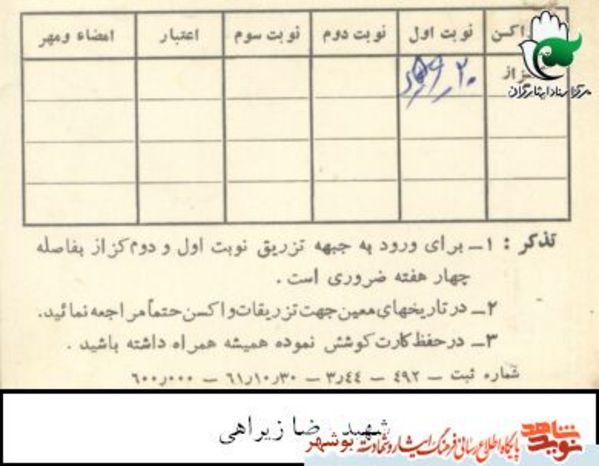 واکسن نوبت اول نوبت دوم نوبت سوم اعتبار امضاء ومهر
کزاز
مرکز اسناد ایثارگران
تذکر : ۱ــ برای ورود به جبهه تزریق نوبت اول و دوم کزاز بفاصله
چهار هفته ضروری است .
۲ــ در تاریخهای معین جهت تزریقات واکسن حتماً مراجعه نمائید.
۳ــ در حفظ کارت کوشش نموده همیشه همراه داشته باشید .
شماره ثبت ــ ۴۹۲ ــ ۳٫۴۴ ــ ۶۱٫۱۰٫۳۰ ــ ۶۰۰٫۰۰۰
شهید رضا زیراهی
نوید شاهد پایگاه اطلاع رسانی فرهنگ ایثار و شهادت بوشهر